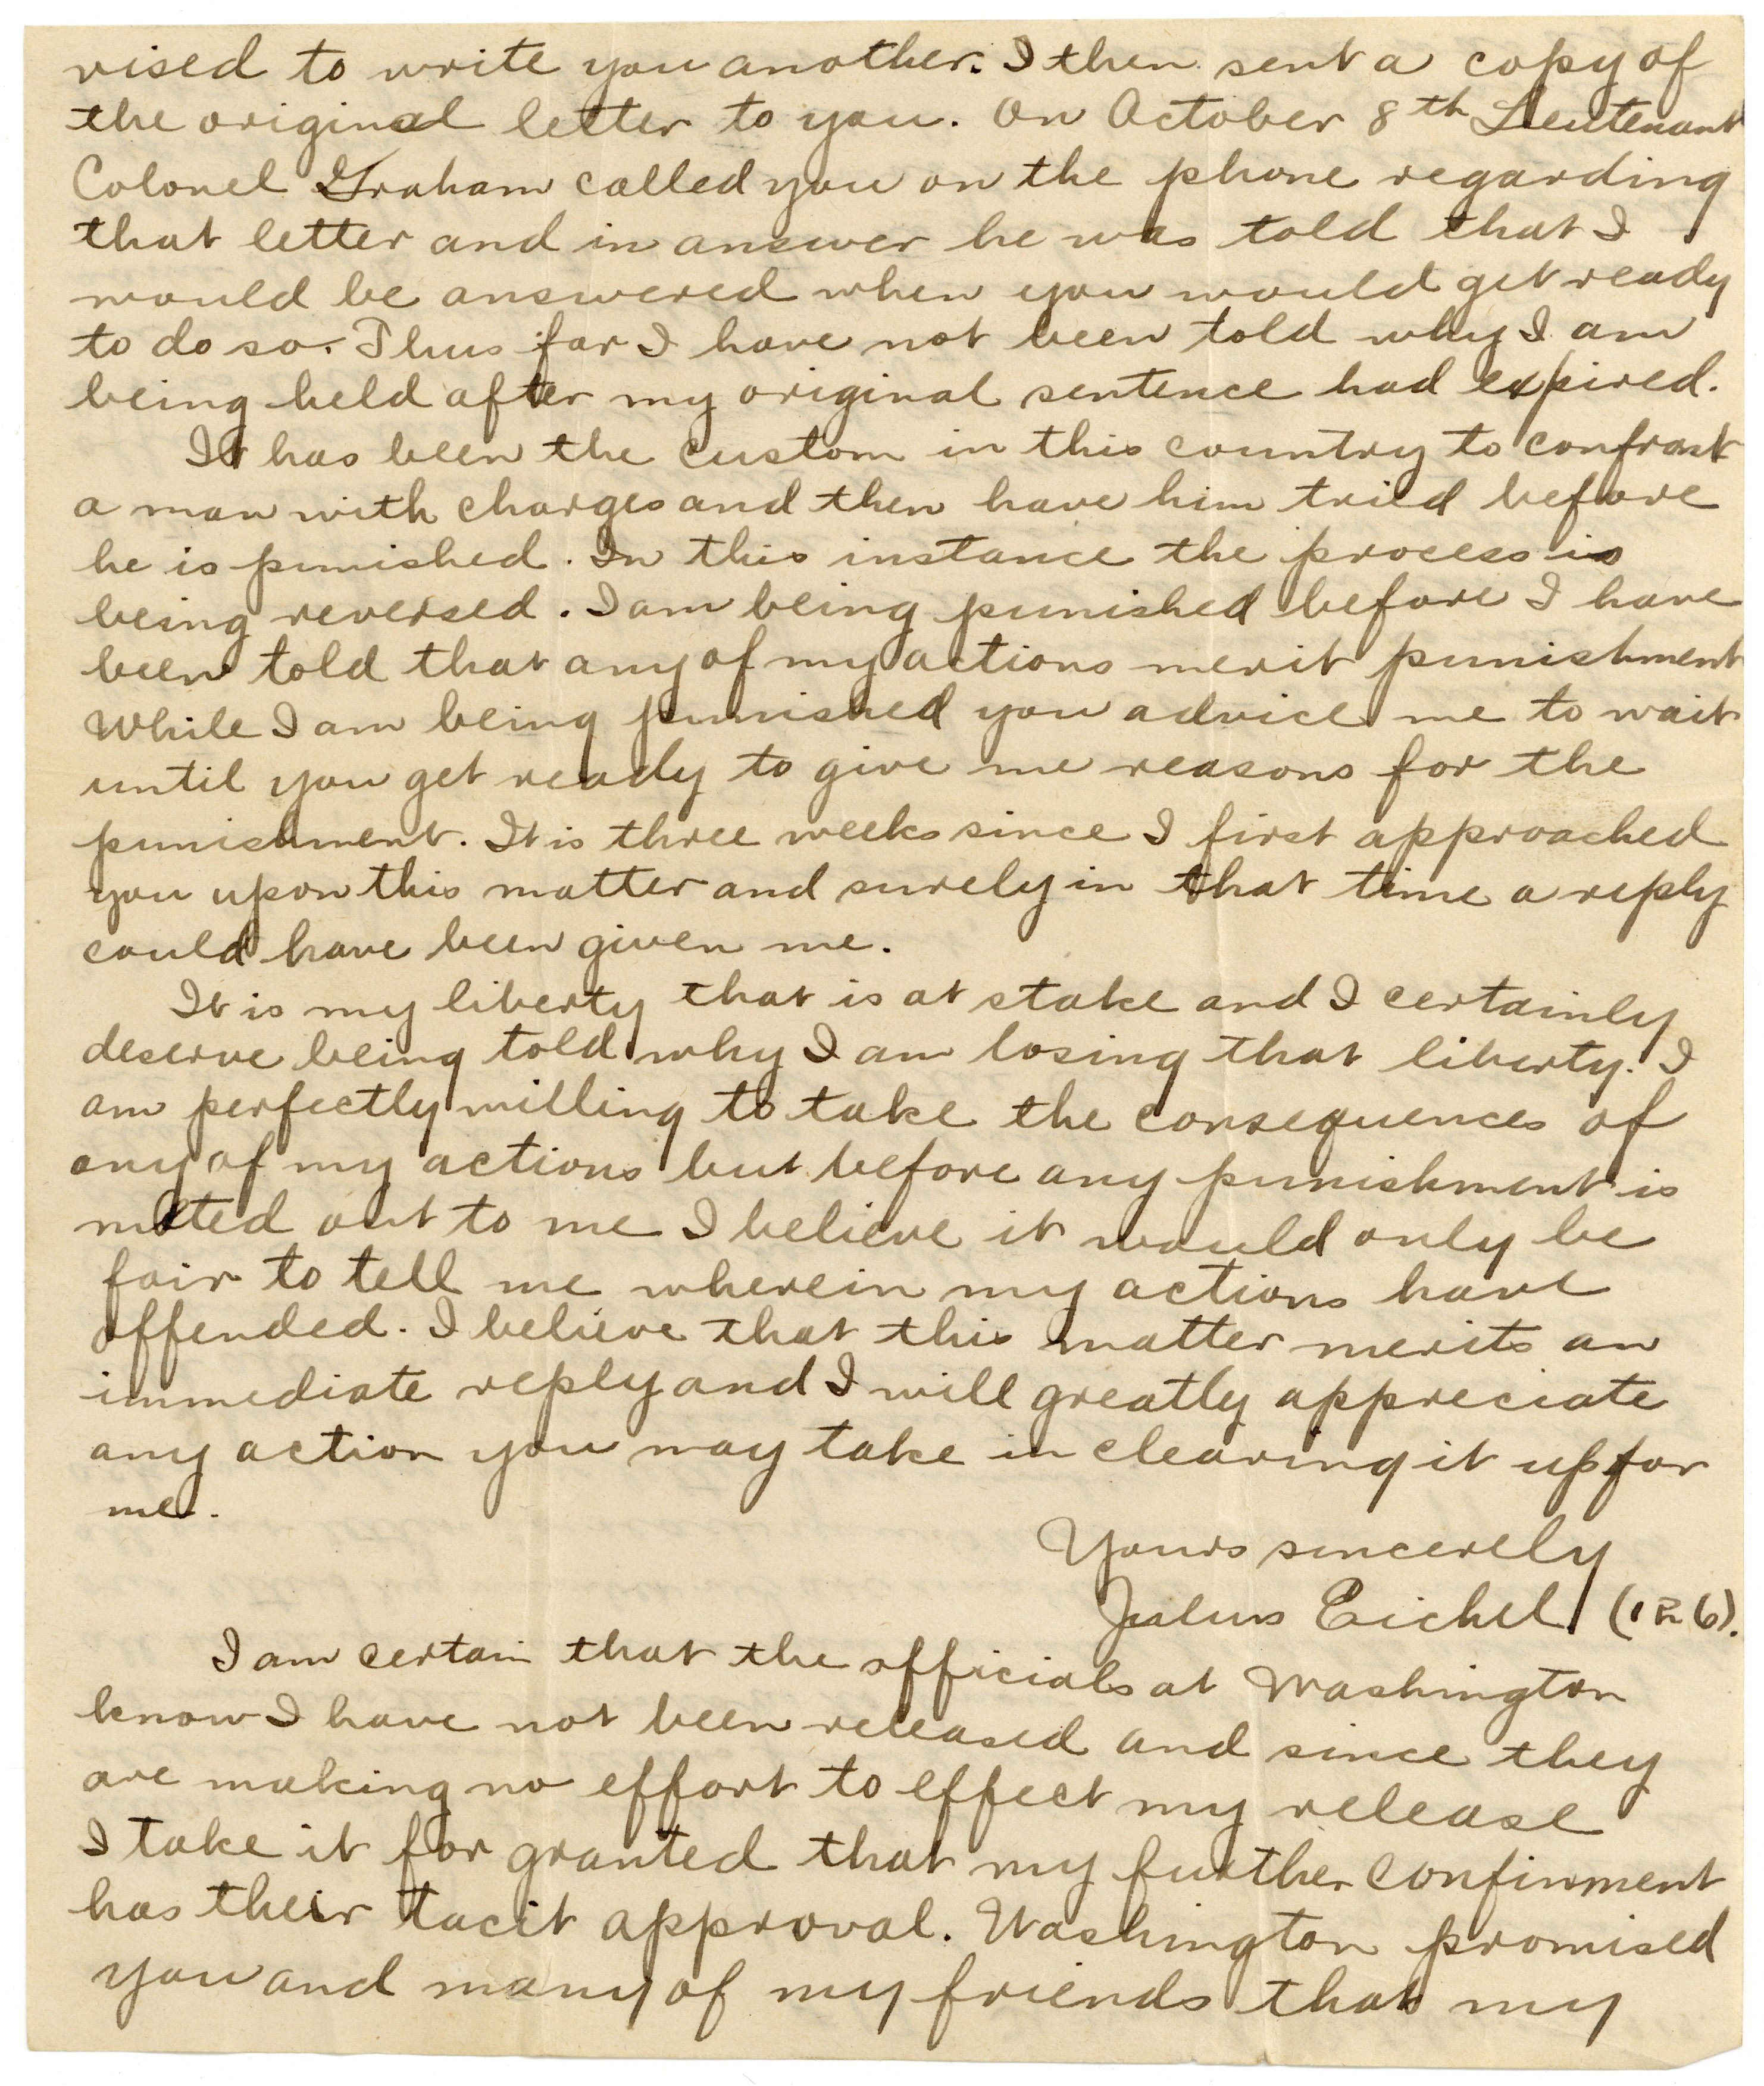 vised to write you another. I then sent a copy of
the original letter to you. On October 8th Lieutenant
Colonel Graham called you on the phone regarding
that letter and in answer he was told that I
would be answered when you would get ready
to do so. Thus far I have not been told why I am
being held after my original sentence had expired.
It has been the custom in this country to confront
a man with charges and then have him tried before
he is punished. In this instance the process is
being reversed. I am being punished before I have
been told that any of my actions merit punishment
While I am being punished you advice me to wait
until you get ready to give me reasons for the
punishment. It is three weeks since I first approached
you upon this matter and surely in that time a reply
could have been given me.
It is my liberty that is at stake and I certainly
deserve being told why I am losing that liberty. I
am perfectly willing to take the consequences of
any of my actions but before any punishment is
meted out to me I believe it would only be
fair to tell me wherein my actions have
offended. I believe that this matter merits an
immediate reply and I will greatly appreciate
any action you may take in clearing it up for
me.
Yours sincerely
Julius Eichel
I am certain that the officials at Washington
know I have not been released and since they
are making no effort to effect my release
I take it for granted that my further confinment
has their tacit approval. Washington promised
you and many of my friends that my